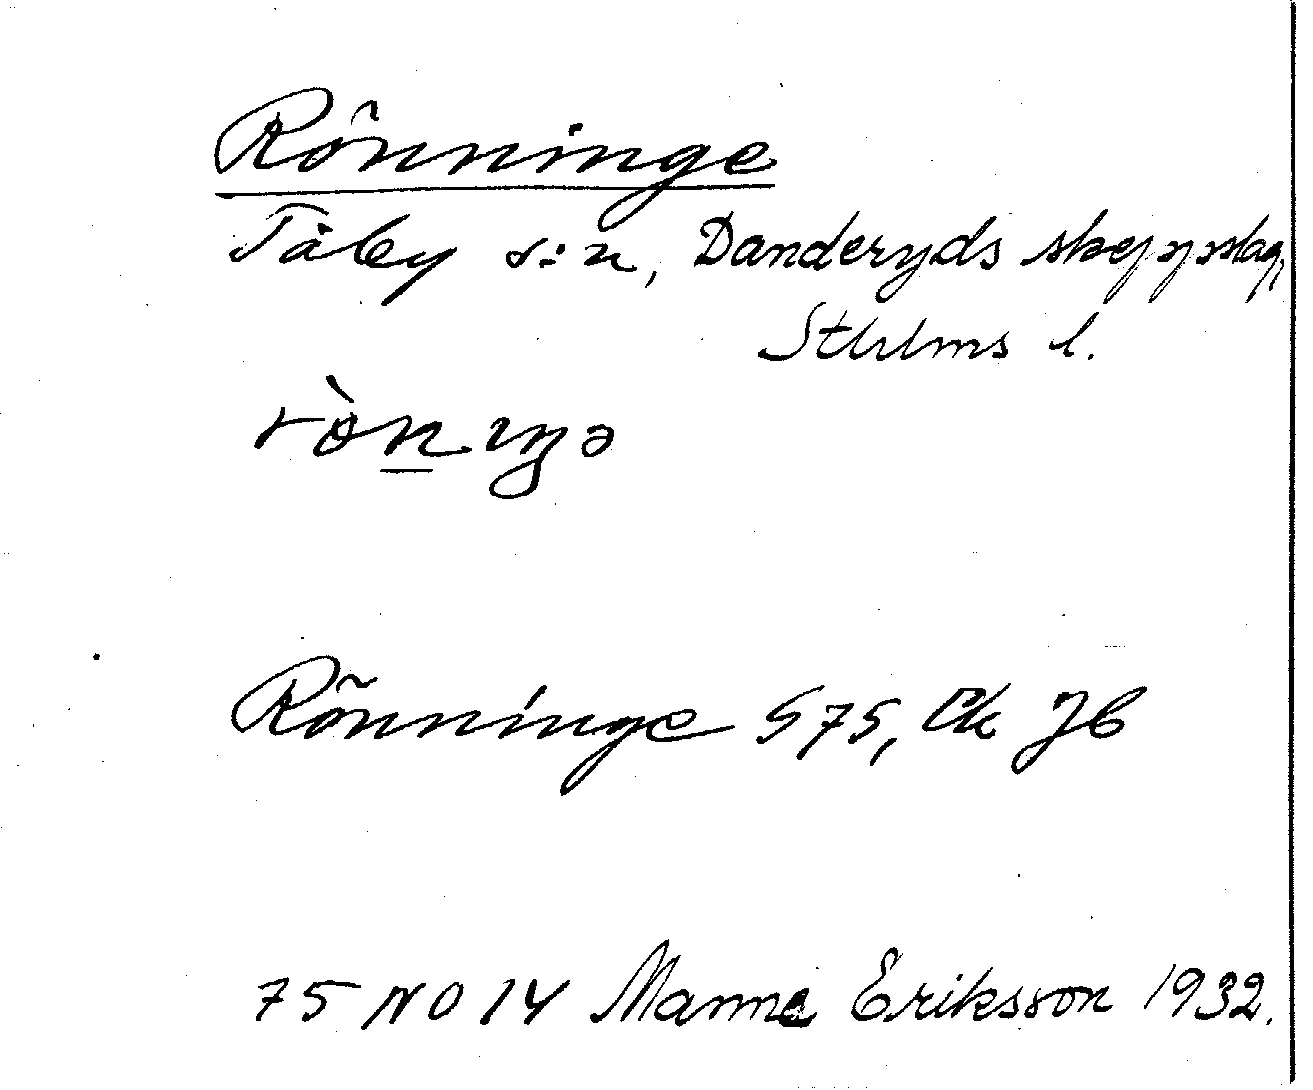 Rönninge
Täby s:n, Danderyds skeppslag,
Sthlms l.
rǜnıŋə
Rönninge G75, Ek Jb
75 NO 14 Manne Eriksson 1932.